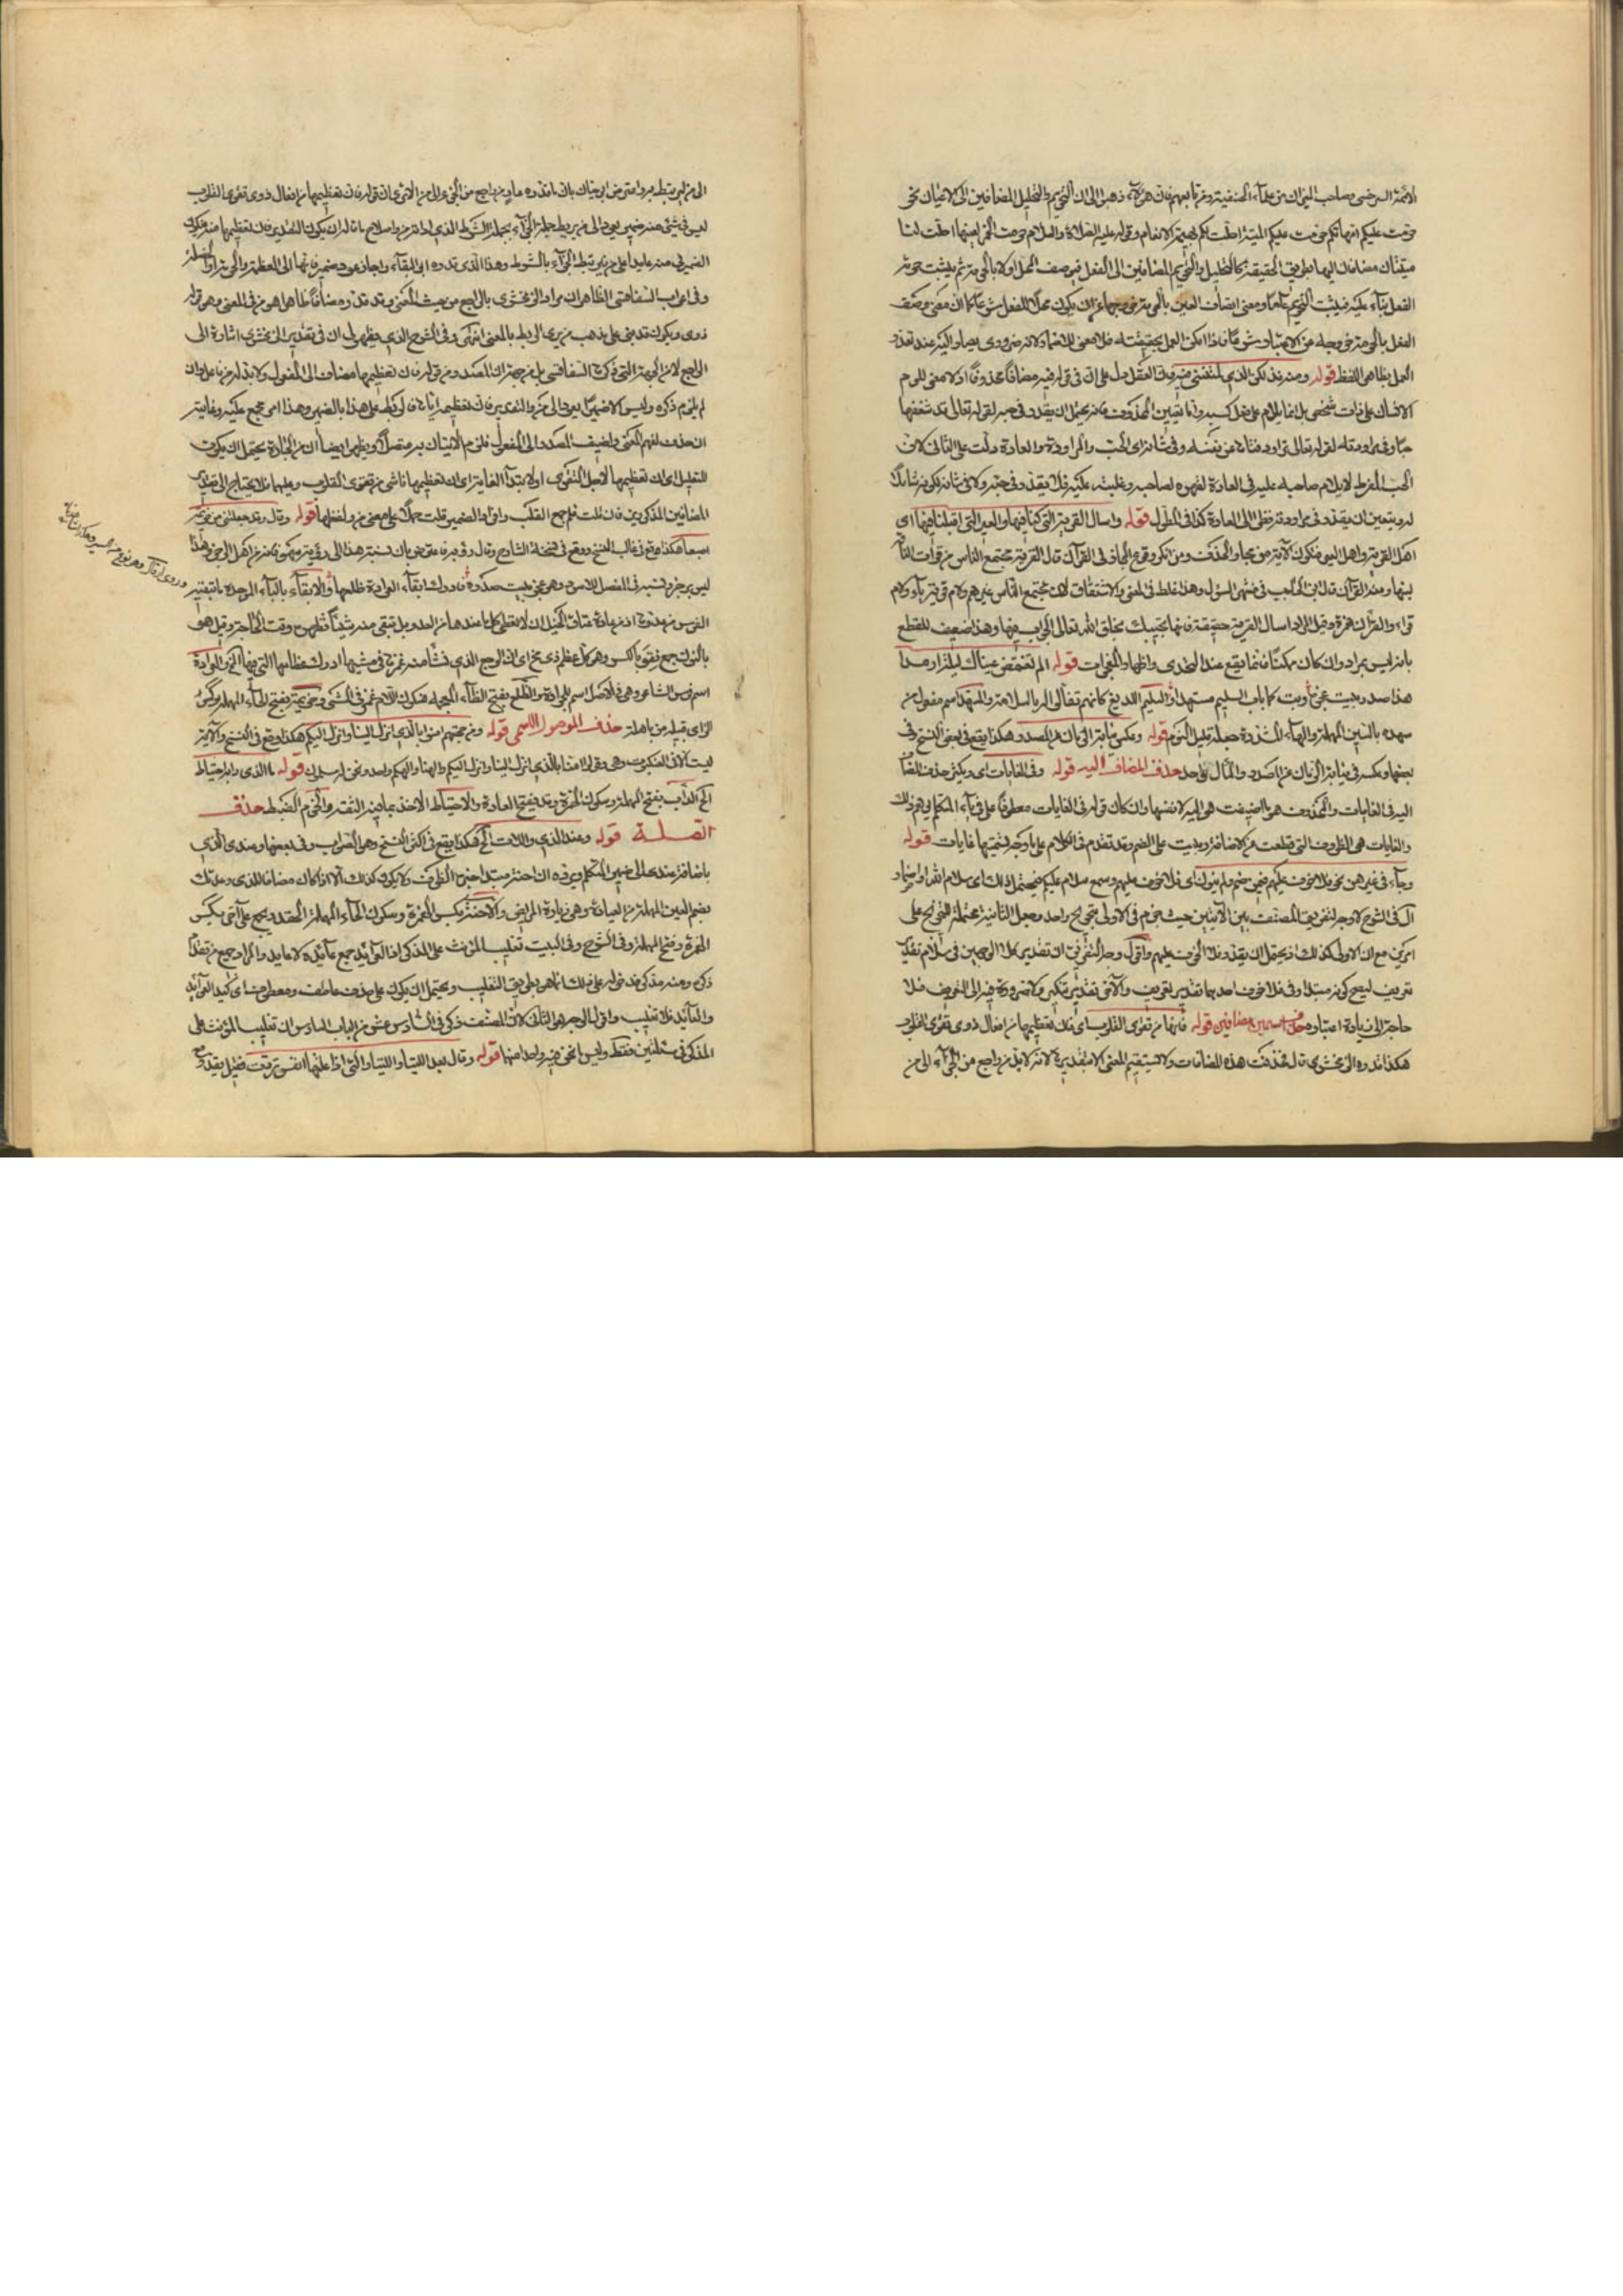 الائمة السرخسي وصاحب الميزان من علماء الحنفية ومن تابعهم فان هؤلاء ذهبوا الى ان التحريم والتحليل المضافين الى الاعيان نحو
حرمت عليكم امهاتكم حرمت عليكم الميتة احلت لكم بهيمة الانعام وقوله عليه الصلاة والسلام حرمت الخمر لعينها احلت لنا
ميتتان مضافان اليها بطريق الحقيقة كالتحليل والتحريم المضافين الى الفعل فيوصف المحل اولا بالحرمة ثم يثبت حرمة
الفعل بناء عليه فيثبت التحريم عاما ومعنى اتصاف العين بالحرمة خروجها عن ان يكون محلا للفعل شرعا كما ان معنى وصف
الفعل بالحرمة خروجه من الاعتبار شرعا فاذا امكن العمل بحقيقته فلا معنى للاضمار لانه ضروري يصار اليه عند تعذر
العمل بظاهر اللفظ قوله ومنه فذلكن الذي لمتنني فيه فان العقل دل على ان في قوله فيه مضافا محذوفا اذ لا معنى للوم
الانسان على ذات شخص بل انما يلام على فعل كسبه واما تعيين المحذوف فانه يحتمل ان يقدر في حبه لقوله تعالى قد شغفها
حبا وفي مراودته لقوله تعالى تراود فتاها عن نفسه وفي شانه اي الحب والمراودة والعادة دلت على الثاني لان
الحب المفرط لا يلام صاحبه عليه في العادة لقهره لصاحبه وغلبته عليه فلا يقدر في حبه ولا في شانه لكونه شاملا
له ويتعين ان يقدر في مراودته نظرا الى العادة كذا في المطول قوله واسال القرية التي كنا فيها والعير التي اقبلنا فيها اي
اهل القرية واهل العير فتكون الآية من مجاز الحذف ومن انكر وقوع المجاز في القرآن قال القرية مجتمع الناس من قرأت الناقة
لبنها ومنه القرآن قال ابن الحاجب في منتهى السول وهذا غلط في المعنى والاشتقاق لان مجتمع الناس غيرهم ولام قرية ياء ولام
قراء والقرآن همزة وقيل المراد اسال القرية حقيقة فانها تجيبك بخلق الله تعالى الجواب فيها وهذا ضعيف للقطع
بانه ليس بمراد وان كان ممكنا فانما يقع عند التحدي واظهار المعجزات قوله الم تغتمض عيناك ليلة ارمدا
هذا صدر بيت عجزه وبت كما بات السليم مسهدا والسليم اللديغ كانهم تفألوا له بالسلامة والمسهد اسم مفعول من
سهده بالسين المهملة والهاء المشددة جعله قليل النوم قوله وعكس نيابة الزمان عن المصدر هكذا يقع في بعض النسخ وفي
بعضها وعكسه في نيابة الزمان عن المصدر والمآل واحد حذف المضاف اليه قوله وفي الغايات اي ويكثر حذف المضاف
اليه في الغايات والمحذوف هو ما اضيفت هي اليه لا نفسها وان كان قوله في الغايات معطوفا على في ياء المتكلم
والغايات هي الظروف التي قطعت عن الاضافة وبنيت على الضم وقد تقدم في الكلام على يا وجه تسميتها غايات قوله
وجاء في غيرهن نحو فلا خوف عليهم فيمن ضم ولم ينون اي فلا خوف شيء عليهم وسمع سلام عليكم فيحتمل ذلك اي سلام الله او اضمار
ال في الشرح لا وجه لتفريق المصنف بين الآيتين حيث جزم في الاولى بتخريج واحد وجعل الثانية محتملة للتخريج على
امرين مع ان الاولى كذلك اذ يحتمل ان يقدر فلا الخوف عليهم واقول وجه التفريق ان تقدير كلا الوجهين في سلام تقدير
تعريف ليصح كونه مبتدا وفي فلا خوف احدهما تقدير تعريف والآخر تقدير تنكير ولا ضرورة فيه الى التعريف فلا
حاجة الى زيادة اعتباره حذف اسمين مضافين قوله فانها من تقوى القلوب اي فان تعظيمها من افعال ذوي تقوى القلوب
هكذا قدره الزمخشري قال فحذفت هذه المضافات ولا يستقيم المعنى الا بتقديرها لانه لا بد من راجع من الجزاء الى من
الى من ليرتبط به واعترض ابو حيان بان ما قدره عار من راجع من الجزء الى من الا ترى ان قوله فان تعظيمها من افعال ذوي تقوى القلوب
ليس في شيء منه ضمير يعود الى من يربط جملة الجزاء بجملة الشرط الذي اداته من واصلاح ما قاله ان يكون التقدير فان تعظيمها منه فيكون
الضمير في منه عائدا على من فيرتبط الجزاء بالشرط وهذا الذي قدره ابو البقاء واجاز عود ضمير فانها الى العظمة والحرمة او الخصلة
وفي اعراب السفاقسي الظاهر ان مراد الزمخشري بالراجع من حيث المعنى وقد قدره مضافا ظاهرا هو من في المعنى وهو قوله
ذوي ويكون قد بنى على مذهب من يرى الربط بالمعنى انتهى وفي الشرح الذي يظهر لي ان في تقدير الزمخشري اشارة الى
الراجع لا من الجهة التي ذكرها السفاقسي بل من جهة ان المصدر من قوله فان تعظيمها مضاف الى المفعول ولا بد له من فاعل وان
لم يلزم ذكره وليس الا ضميرا يعود الى من والتقدير فان تعظيمه اياها فالربط على هذا بالضمير وهذا امر مجمع عليه وغايته
انه حذف لفهم المعنى واضيف المصدر الى المفعول فلزم الاتيان به متصلا ويظهر ايضا ان من الجارة يحتمل ان يكون
للتعليل اي ان تعظيمها لاجل التقوى او لابتداء الغاية اي ان تعظيمها ناشئ من تقوى القلوب وعليهما فلا يحتاج الى تقدير
المضافين المذكورين فان قلت فلم جمع القلب وافرد الضمير قلت حملا على معنى من ولفظها قوله وقال وقد جعلتني من حزيمة
اصبعا هكذا وقع في غالب النسخ ووقع في نسخة الشارح وقال رؤبة فاعترض بان نسبة هذا الى رؤبة سهو فانه من اهل الرجز وهذا
ليس برجز ونسبه في المفصل للاسود وهو عجز بيت صدره فادرك ابقاء العرادة ظلعها والابقاء بالباء الموحدة ما تبقيه
الفرس من العدو اذ من عادة عتاق الخيل ان لا تعطي كل ما عندها من العدو بل تبقي منه شيئا تظهره وقت الحاجة وقيل هو
بالنون جمع نقو بالكسر وهو كل عظم ذي مخ اي ان الوجع الذي نشا منه غمزها في مشيها ادرك عظامها التي فيها المخ والعرادة
اسم فرس الشاعر وهي في الاصل اسم للجرادة والظلع بفتح الظاء المعجمة فسكون اللام غمز في المشي وحزيمة بفتح الحاء المهملة وكسر
الزاي قبيلة من باهلة حذف الموصول الاسمي قوله ومن حجتهم آمنوا بالذي انزل الينا وانزل اليكم هكذا وقع في النسخ والآية
ليست الا في العنكبوت وهي وقولوا آمنا بالذي انزل الينا وانزل اليكم والهنا والهكم واحد ونحن له مسلمون قوله ما الذي دابه احتياط
الخ الداب بفتح المهملة وسكون الهمزة وقد يفتح العادة والاحتياط الاخذ بما فيه الثقة والحزم الضبط حذف
الصلة قوله وعند الذي واللات الخ هكذا يقع في اكثر النسخ وهو الصواب وفي بعضها وعندي الذي
باضافة عند الى ضمير المتكلم ويرده ان احنة مبتدا خبره الظرف ولا يكون كذلك الا اذا كان مضافا للذي وعدنك
بضم العين المهملة من العيادة وهي زيارة المريض والاحنة بكسر الهمزة وسكون الحاء المهملة الحقد ويجمع على احن بكسر
الهمزة وفتح المهملة وفي الشرح وفي البيت تغليب المؤنث على المذكر اذ العوائد جمع عائدة لا عايد والمراد جمع من تقدم
ذكره ومنه مذكر فدخوله على ذلك انما هو بطريق التغليب ويحتمل ان يكون على حذف عاطف ومعطوف اي كيد العوائد
والعائد فلا تغليب واقول الوجه هو الثاني لان المصنف ذكر في السادس عشر من الباب السادس ان تغليب المؤنث على
المذكر في مسئلتين فقط وليس ما نحن فيه واحدا منهما قوله وقال بعد اللتيا واللتيا والتي اذا علتها انفس تردت فقيل يقدر مع